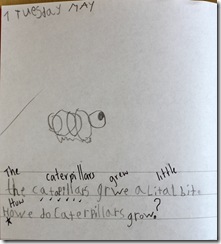 1 TUESDAY MAY
The caterpillars grew little
the catapillars grwe a Lital bite
How
Howe do Caterpillars grow?